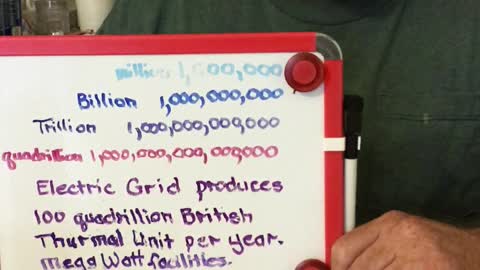 million 1,000,000
Billion 1,000,000,000
Trillion 1,000,000,000,000
quadrillion 1,000,000,000,000,000
Electric Grid produces
100 quadrillion British
Thurmal Unit per year.
Mega Watt facilities.